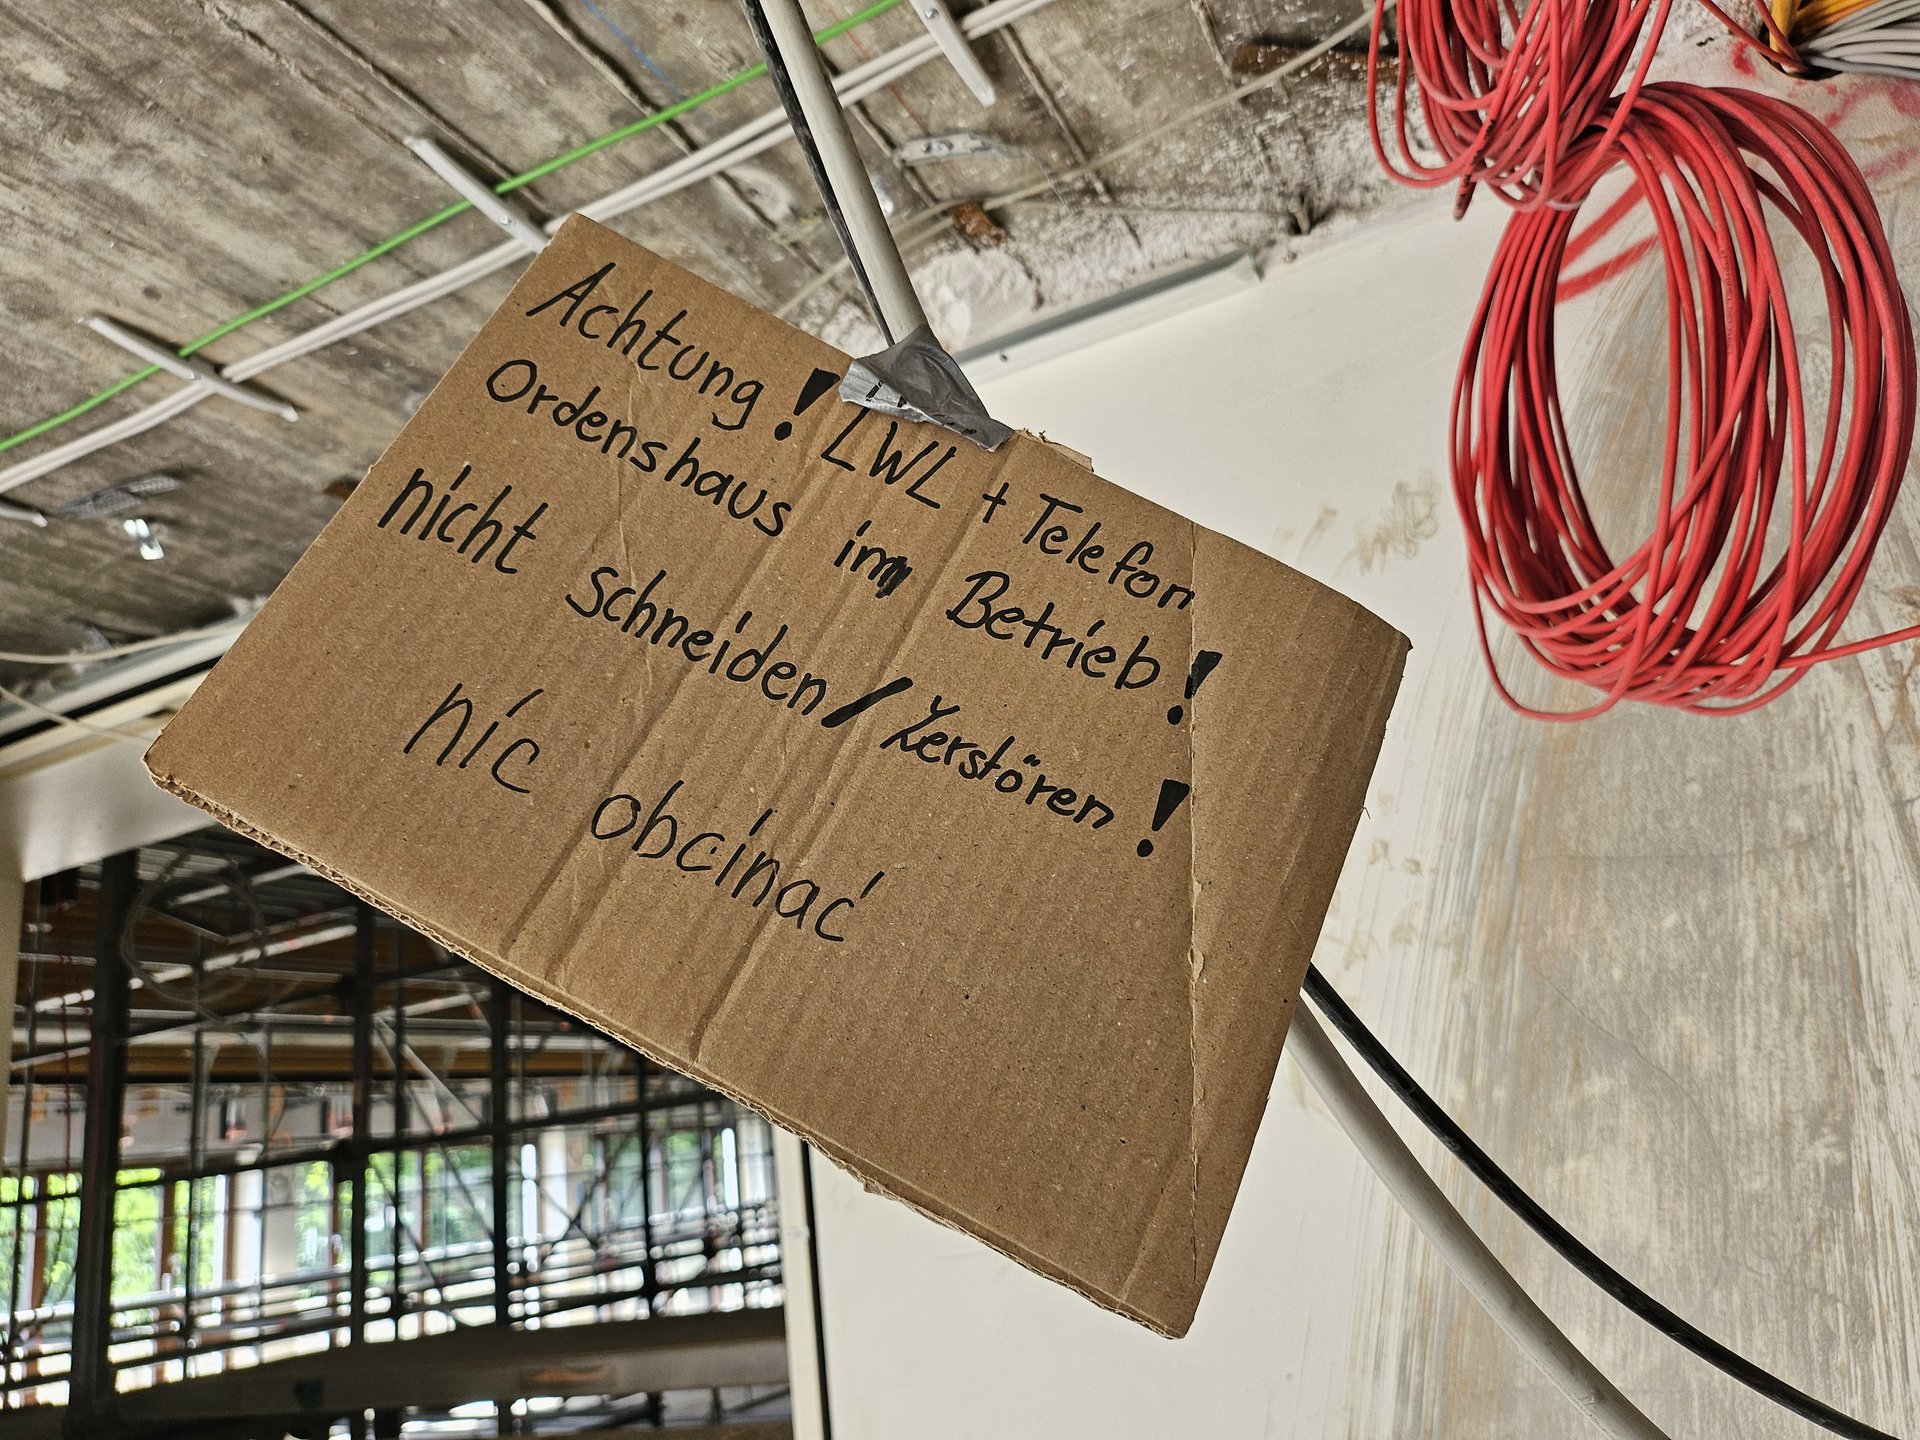 Achtung! LWL + Telefon
Ordenshaus im Betrieb!
nicht schneiden/Zerstören!
nic obcinać